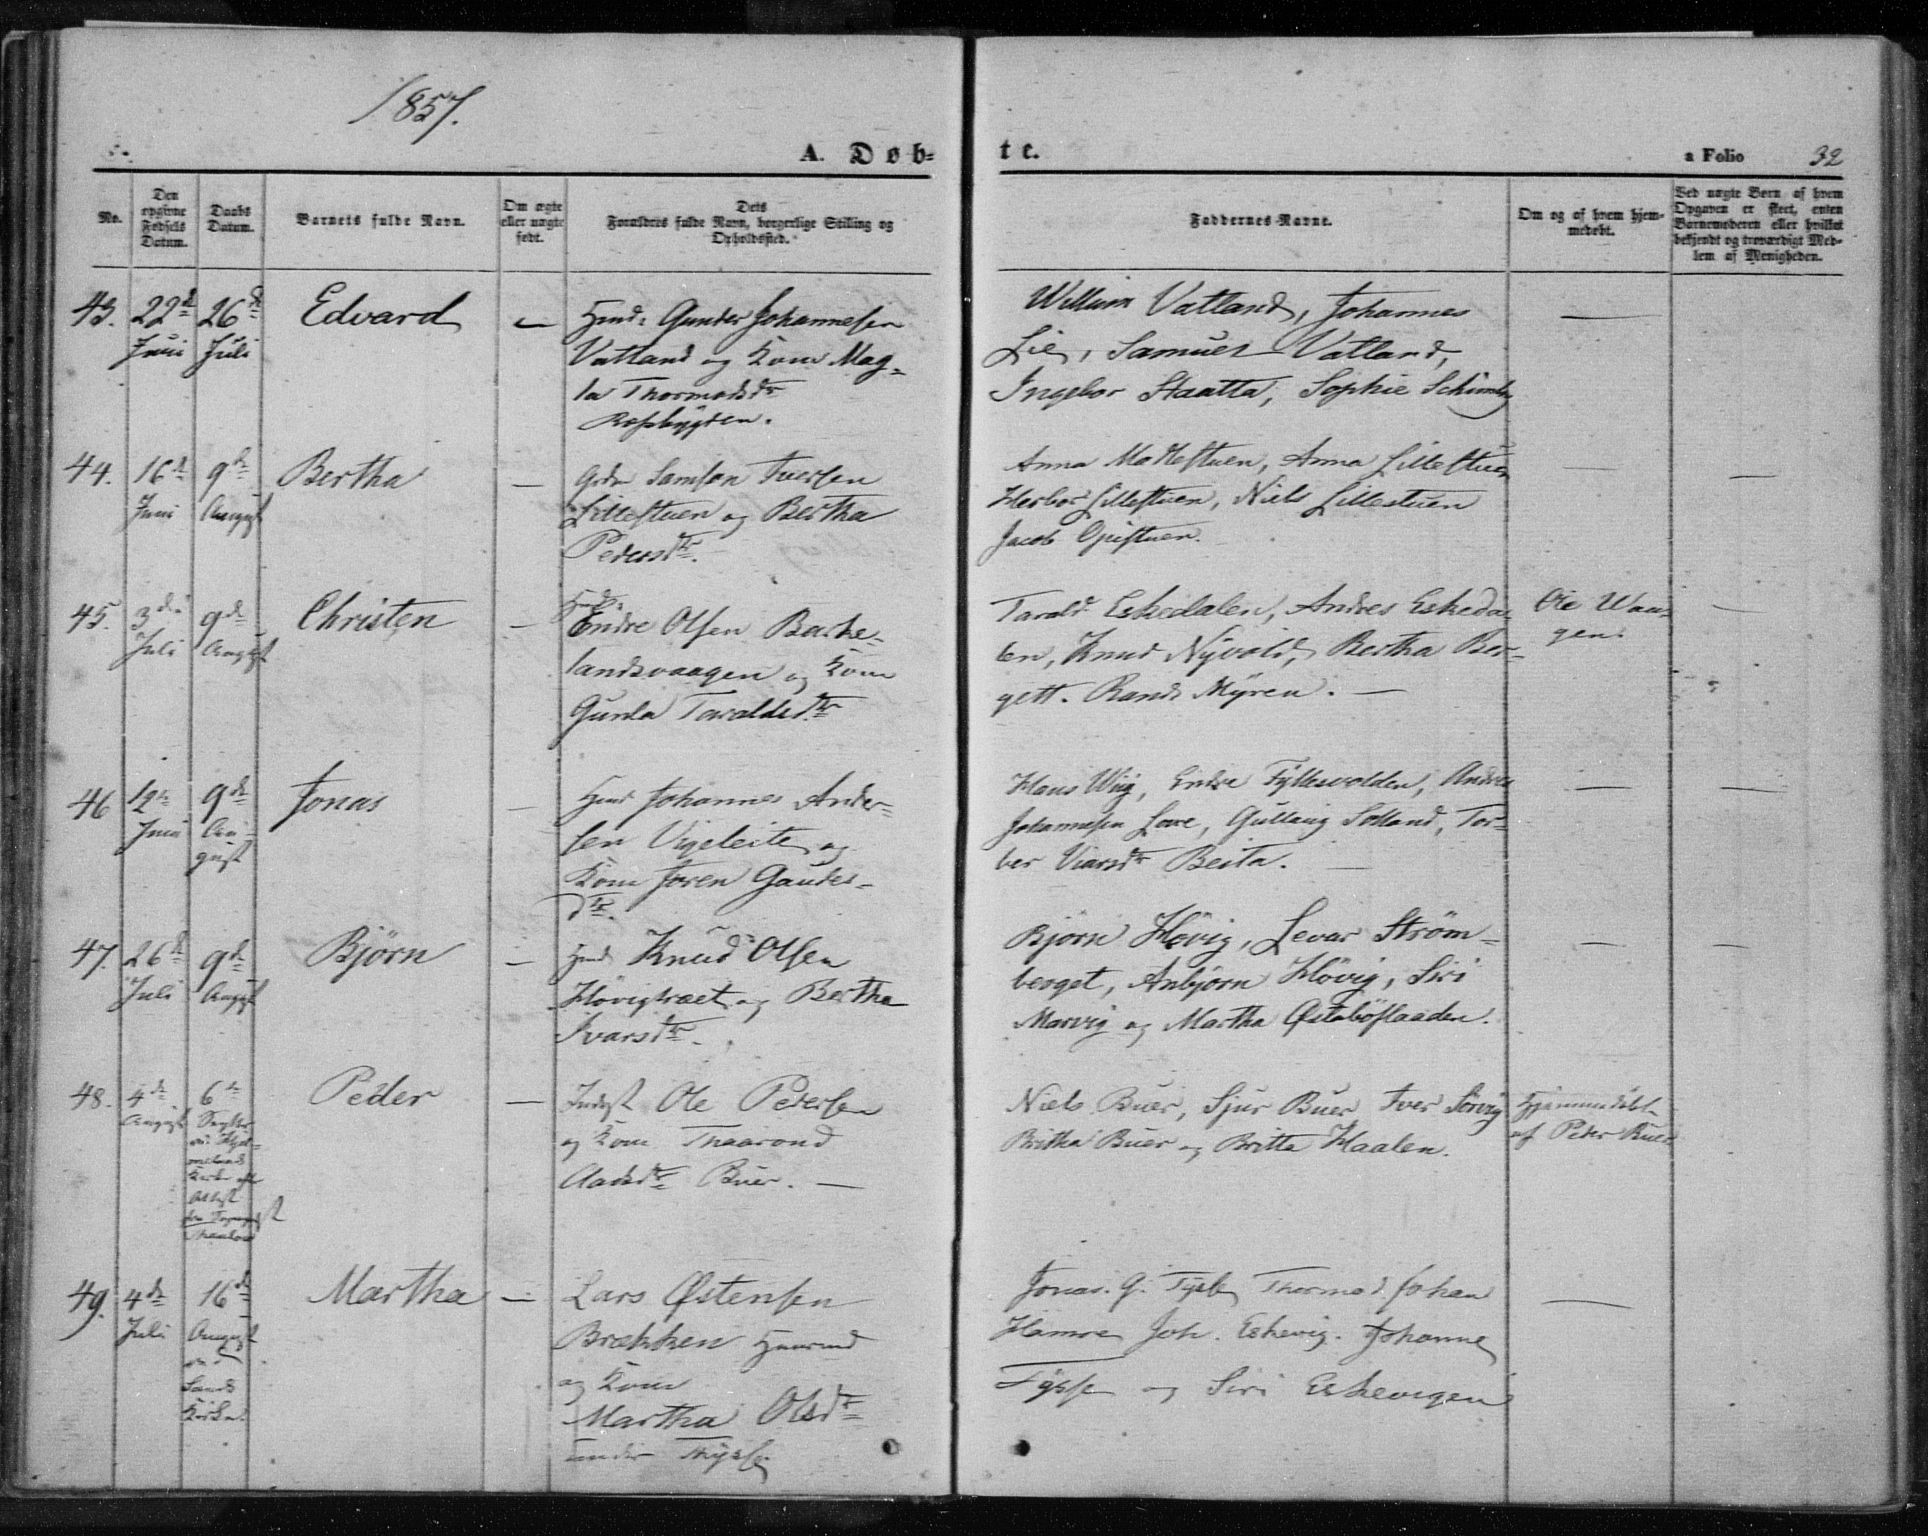 1857.
A. Døb-
te.
a Folio 32
No.
Den opgivne Fødsels Datum.
Daabs Datum.
Barnets fulde Navn.
Om ægte eller uægte født.
Dets Forældres fulde Navn, borgerlige Stilling og Opholdssted.
Faddernes Navne.
Om og af hvem hjemmedøbt.
Ved uægte Børn af hvem Opgaven er skeet, enten Barnemoderen eller hvilket bekjendt og troværdigt Medlem af Menigheden.
43. 22de Juni 26de Juli Edvard —
Huusm: Gunder Johannesen
Vatland og Kone Mag-
la Thormodsdtr
William Vatland, Johannes
Lie, Samuel Vatland,
Ingebor Staatta, Sophie
—
44. 16de Juni 9de August Bertha —
Grdr Samson Iversen
Lillestuen og Bertha
Pedersdtr.
Anna Lillestuen
Herbor Lillestuen, Niels Lillestuen
Jacob
— —
45. 3die Juli 9de August Christen —
Endre Olsen Barke-
landsvaagen og Kone
Gunla Taraldsdtr
Tarald Eskedalen, Andres Eskeda-
len, Knud Nyvold, Bertha Ber-
gett. Rands Myren. —
Ole Waa-
gen.
—
46 12te Juni 9de Au-
gust Jonas —
Johannes Ander-
sen Vigeleite og
Kone Joren Gaudes-
dtr.
Hans Wiig, Endre Fyllesvolden, Andres
Johannesen Love, Solland, Tor-
ber Beita. —
— —
47. 26de Juli 9de August Bjørn —
Knud Olsen
Høvigtræet og Bertha
Ivarsdtr.
Bjørn Høvig, Levar Strøm-
berget, Anbjørn Høvig, Siri
Marvig og Martha Østabøflaaden.
— —
48. 4de August 6te Peder —
Inderst Ole Pedersen
og Kone Thaarond
Aadsdtr Buer. —
Niels Buer, Sjur Buer Iver Sørvig
Britha Buer og Britta Haalen.
Hjemmedøbt
af Peder Buer
49. 4de Juli 16de August
Sands
Kirke. Martha —
Lars Østensen
Brækken Huusmd
og Kone
Martha Olsdtr
under
Jonas. G. Thormod Johan
Hamre Joh. Eskevig. Johanne
og Siri Eskevigen
—